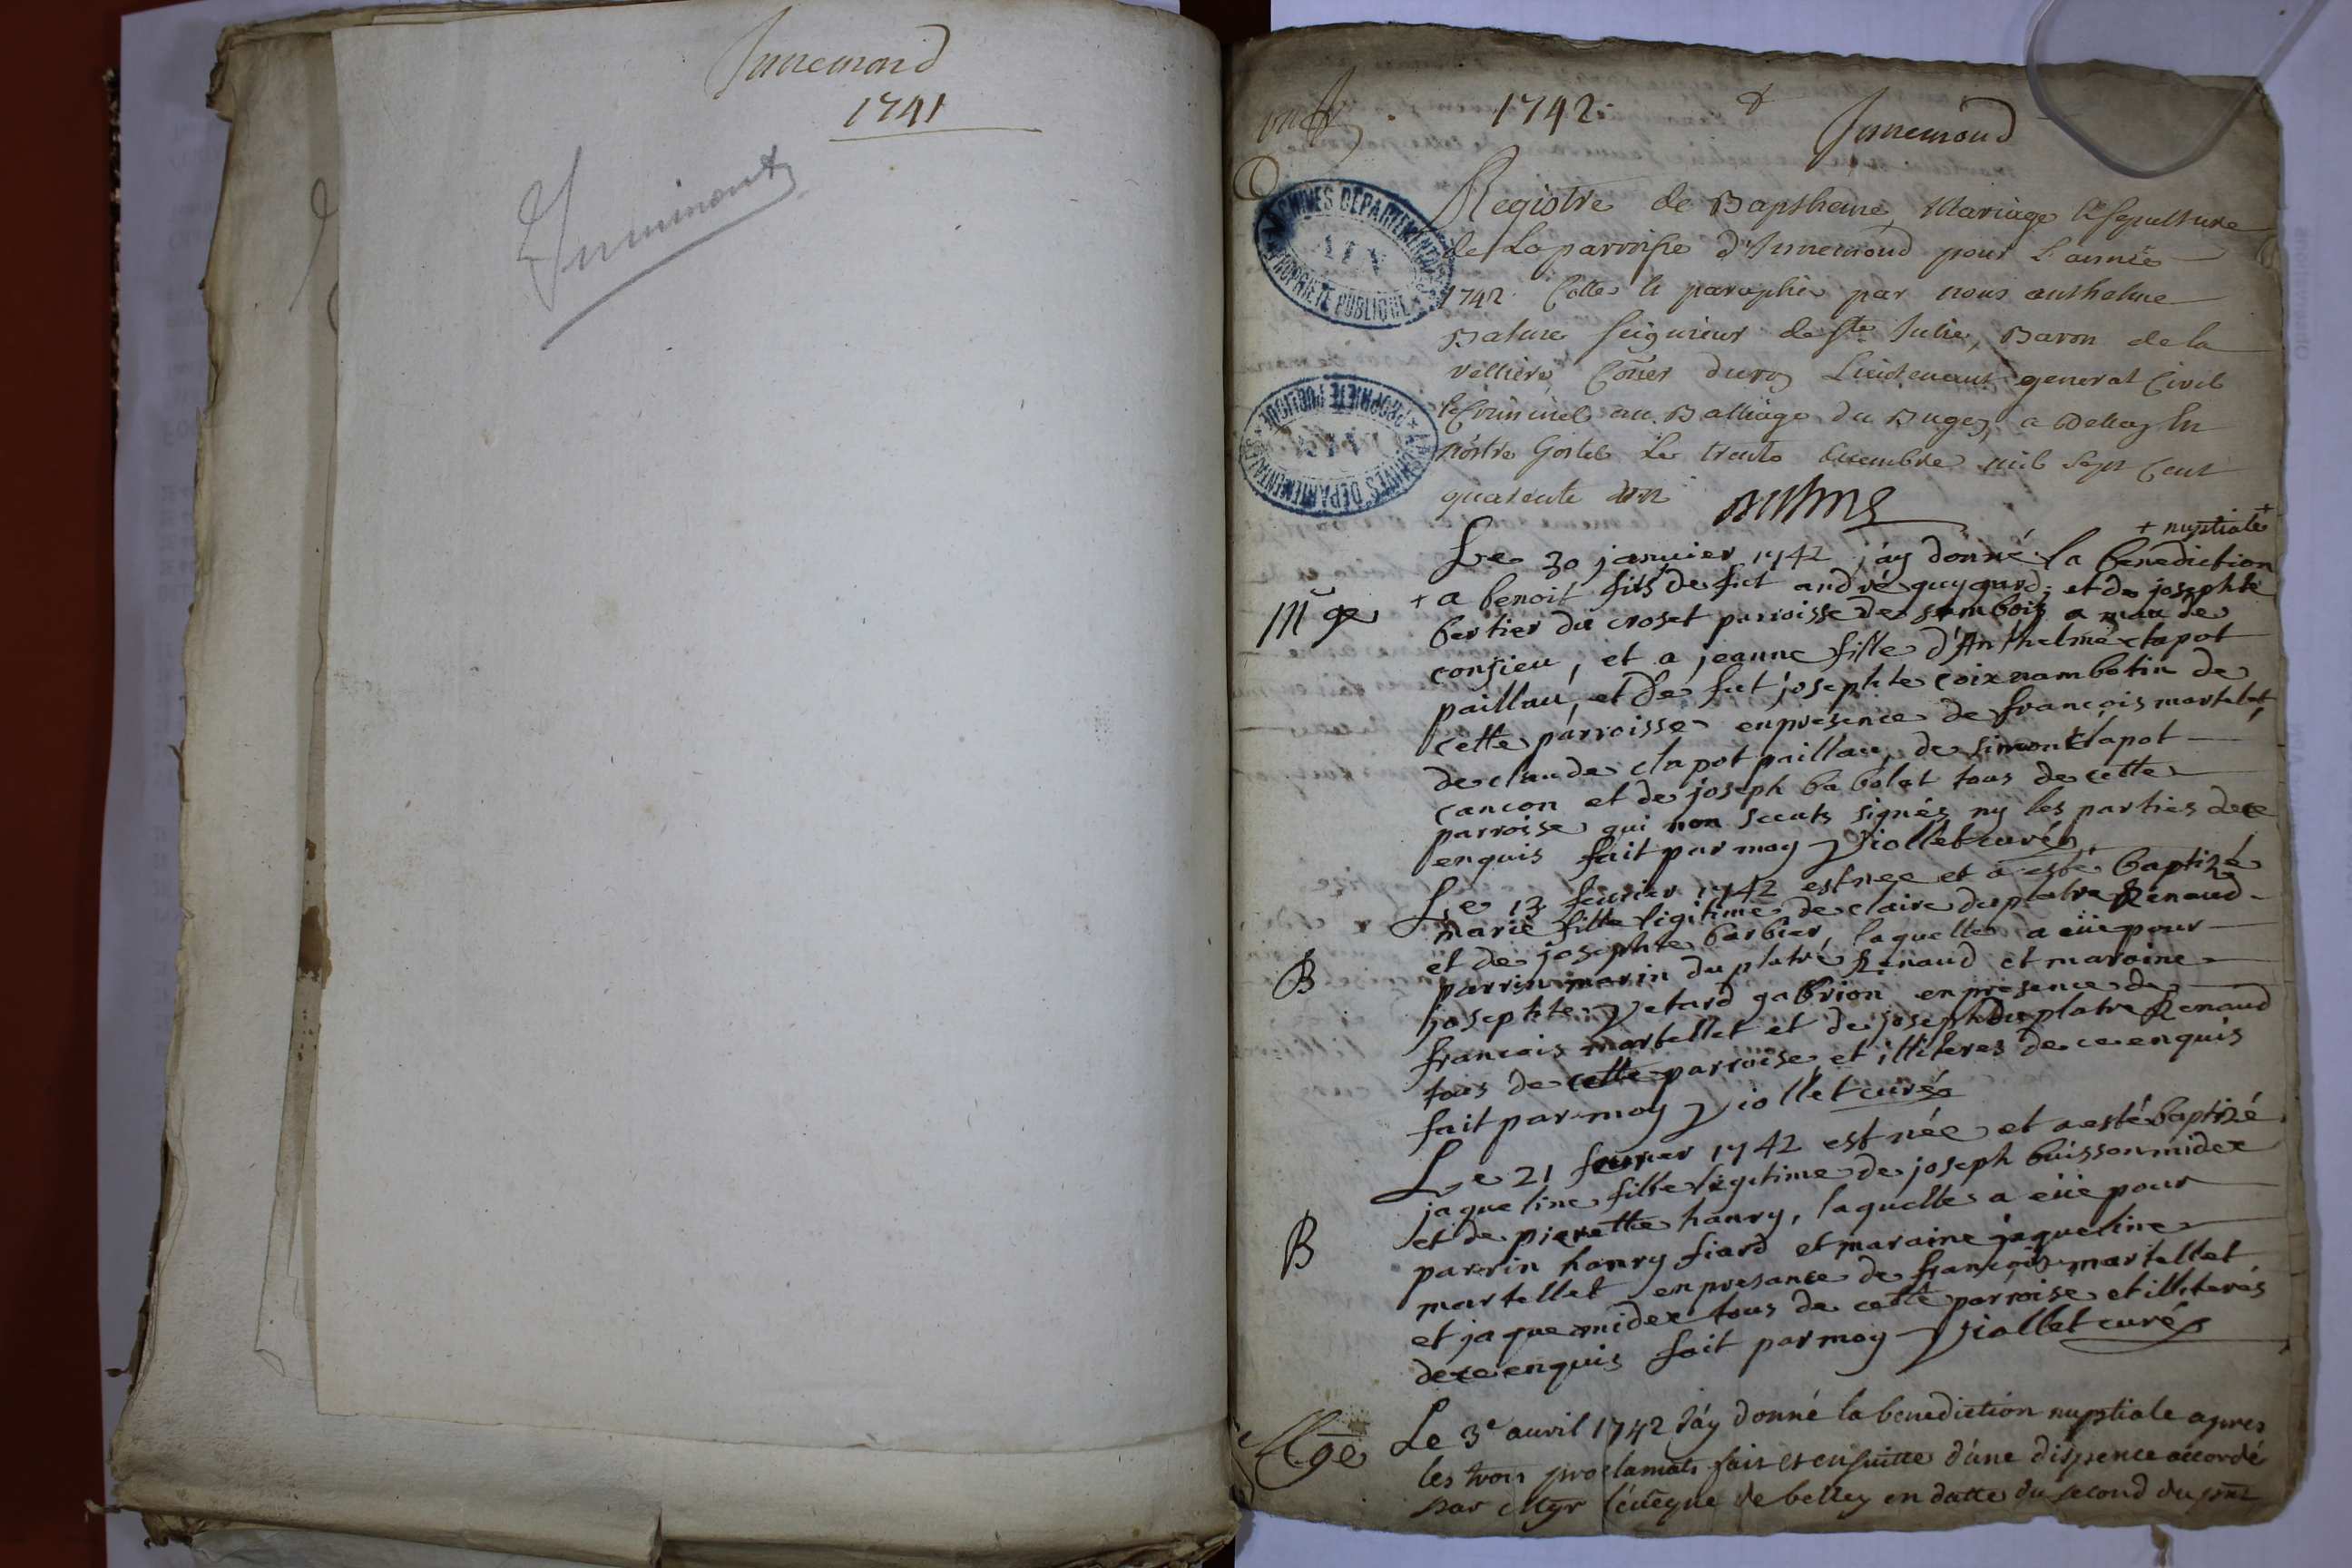 Innemond
1741
Innimont
1742
Innemond
ARCHIVES DEPARTEMENTALES
PROPRIETE PUBLIQUE
Registre de Baptheme, Mariage & Sepulture
de la parroisse d'Innemond pour L'année
1742 Cotté & paraphé par nous anthelme
Balme seigneur de Ste Julie, Baron de la
velliere Coner du roy Lieutenant general Civil
& Criminel au Balliage du Bugey a Belley En
nôstre hostel Le trente decembre mil sept cent
quarente un
Balme
ARCHIVES DEPARTEMENTALES
PROPRIETE PUBLIQUE
+ nuptiale +
Mge
Le 30 janvier 1742 j'ay donné la benediction
+ a benoit fils de fut andré guygard, et de josephte
bertier du croset parroisse de
conzieu, et a jeanne fille d'Anthelme clapot
paillau, et de fut josephte coix nambotin de
cette parroisse enpresence de françois martelet,
de claude clapot paillau, de simon clapot
cancon et de joseph babolat tous de cette
parroise qui non sceuts signés ny les parties dece
enquis fait par moy Viollet curé
B
Le 13 feurier 1742 est nee et a esté baptizé
marie fille ligitime de claire duplatre Renaud
et de josephte barbier, laquelle a eüe pour
parrin marin duplatre Renaud et maraine
josephte Vetard gabrion enpresence de
francois martellet et de joseph Duplatre Renaud
tous de cette parroise et illiteres de ce enquis
fait par moy Viollet curé
B
Le 21 feurier 1742 est née et a esté baptizé
jaqueline fille legitime de joseph buisson midex
et de pierette hanry, laquelle a eüe pour
parrin hanry fiard et maraine jaqueline
martellet enpresance de françois martellet
et jaque midex tous de cette parroise et illiterés
dece enquis fait par moy Viollet curé
Mge
Le 3e auril 1742 J'ay donné la benediction nuptiale apres
les trois proclamats fait et ensuitte d'une dispence accordé
par Mgr l'evêque de belley en datte du second du pnt